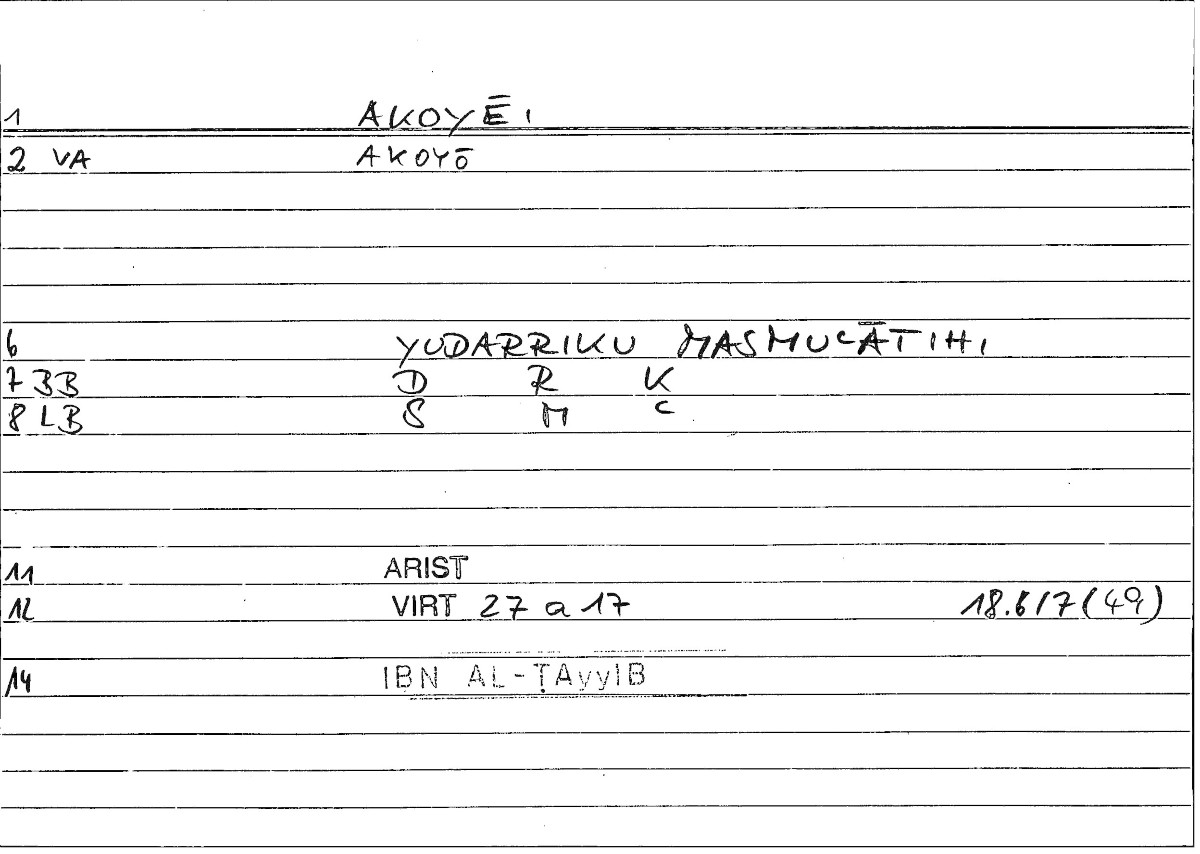 1 AKOYĒI
2 VA AKOYŌ
6 YUDARRIKU MASMUCĀTIHI
7 BB D R K
8 LB S M C
11 ARIST
12 VIRT 27 a 17 18.6/7(49)
14 IBN AL-ṬAyyIB